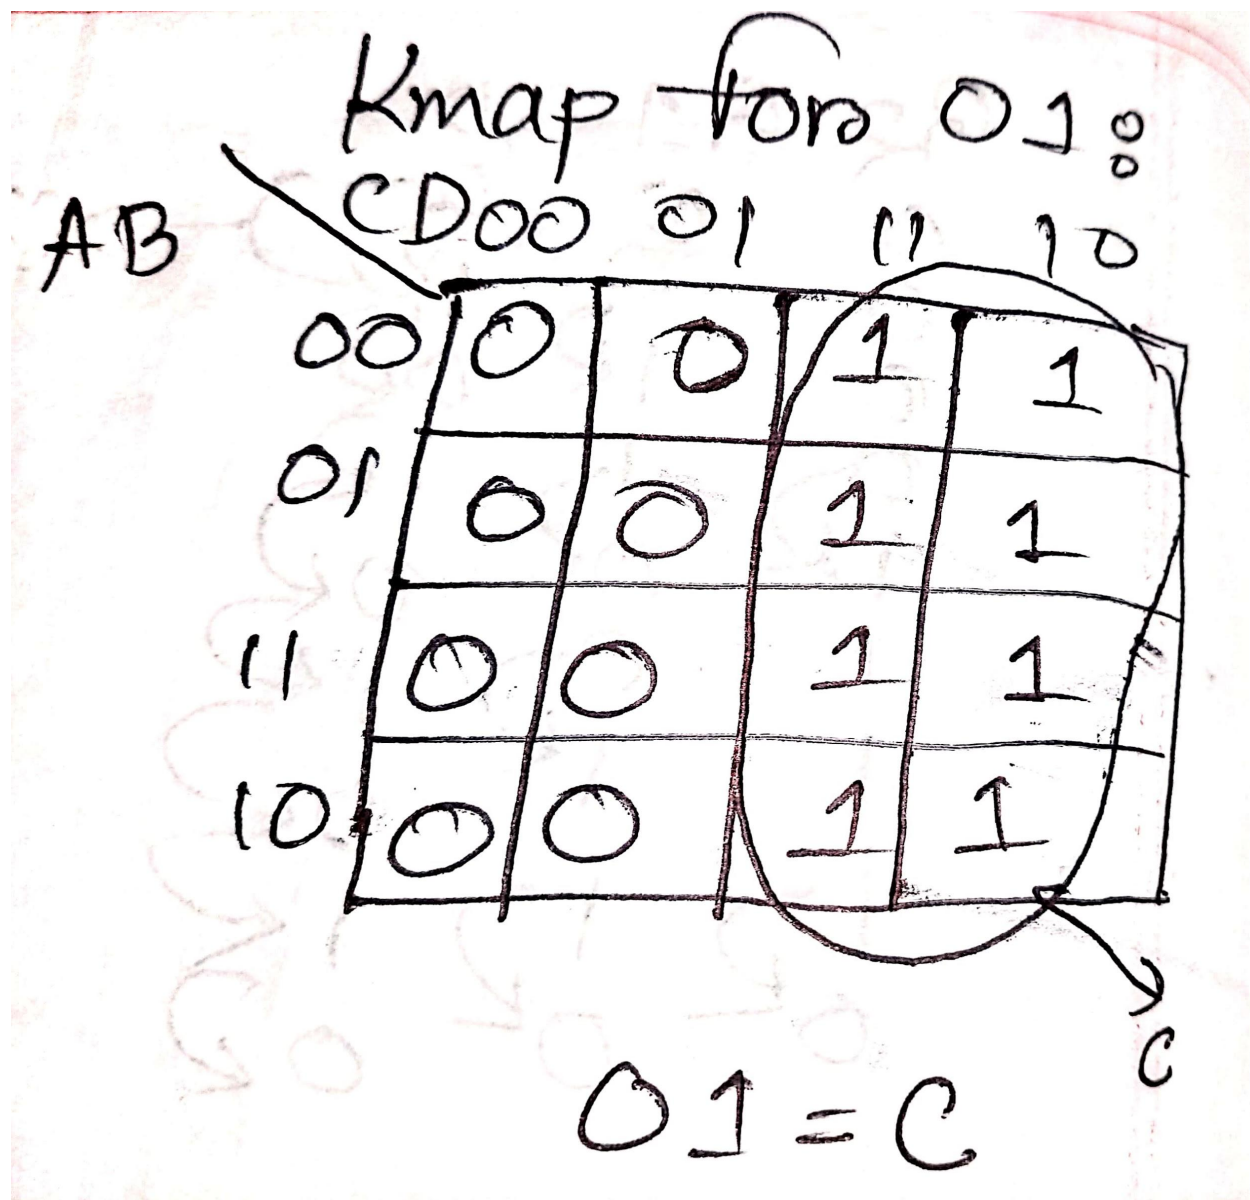 Kmap for O1:
AB CD 00 01 11 10
00 0 0 1 1
01 0 0 1 1
11 0 0 1 1
10 0 0 1 1
C
O1 = C